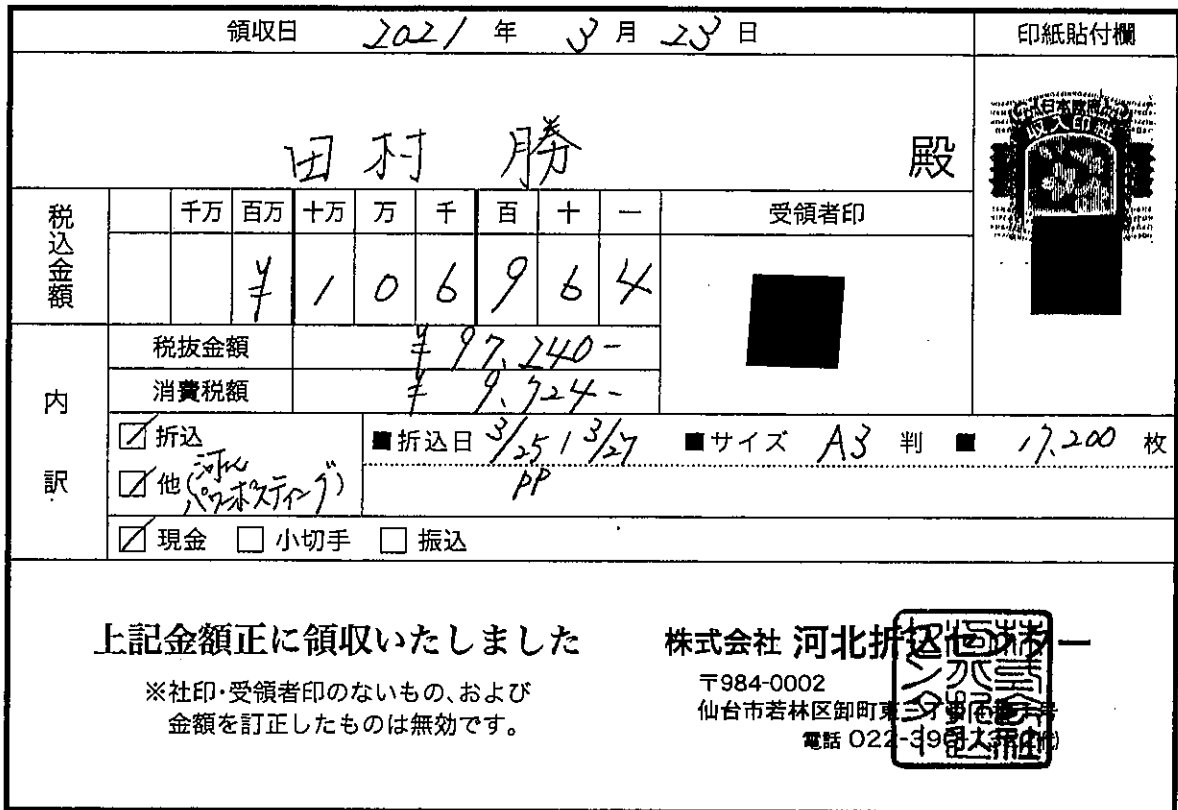 領収日 2021 年 3 月 23 日
印紙貼付欄
日本政府
収入印紙
田村 勝 殿
税込金額
千万 百万 十万 万 千 百 十 一
¥ 1 0 6 9 6 4
受領者印
内訳
税抜金額 ¥97,240-
消費税額 ¥9,724-
☑ 折込
■折込日 3/25 / 3/27 ■サイズ A3 判 ■ 17,200 枚
☑ 他(河北パワーポスティング)
PP
☑ 現金 □ 小切手 □ 振込
上記金額正に領収いたしました
※社印・受領者印のないもの、および
金額を訂正したものは無効です。
株式会社 河北折込センター
〒984-0002
仙台市若林区卸町東三丁目
電話 022-390-